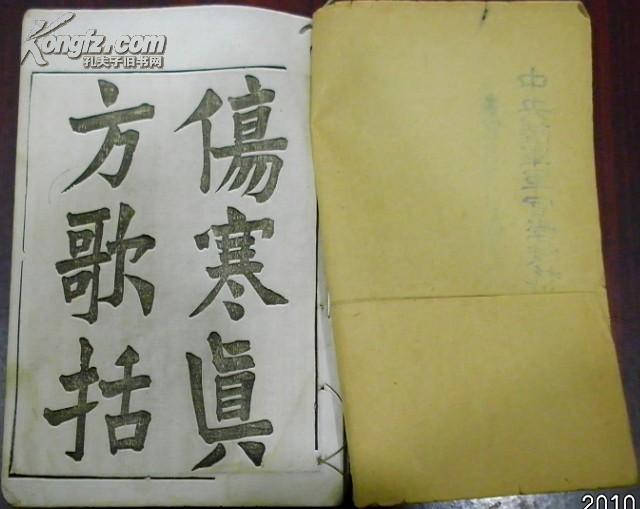 Kongfz.com
孔夫子旧书网
傷寒眞
方歌括
2010